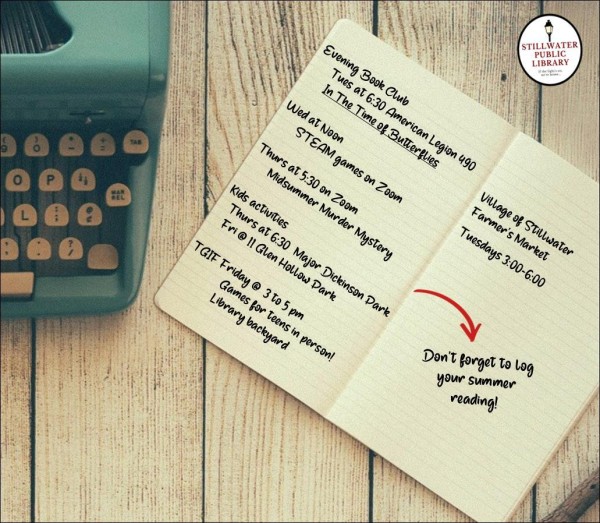 Evening Book Club
Tues at 6:30 American Legion 490
In The Time of Butterflies
Wed at Noon
STEAM games on Zoom
Thurs at 5:30 on Zoom
Midsummer Murder Mystery
Kids activities
Thurs at 6:30 Major Dickinson Dark
Fri @ 11 Glen Hollow Dark
TGIF Friday @ 3 to 5 pm
Games for teens in person!
Library backyard
Village of Stillwater
Farmer's Market
Tuesdays 3:00-6:00
Don't forget to log
your summer
reading!
STILLWATER
PUBLIC
LIBRARY
O
P
TAB
MAR
REL